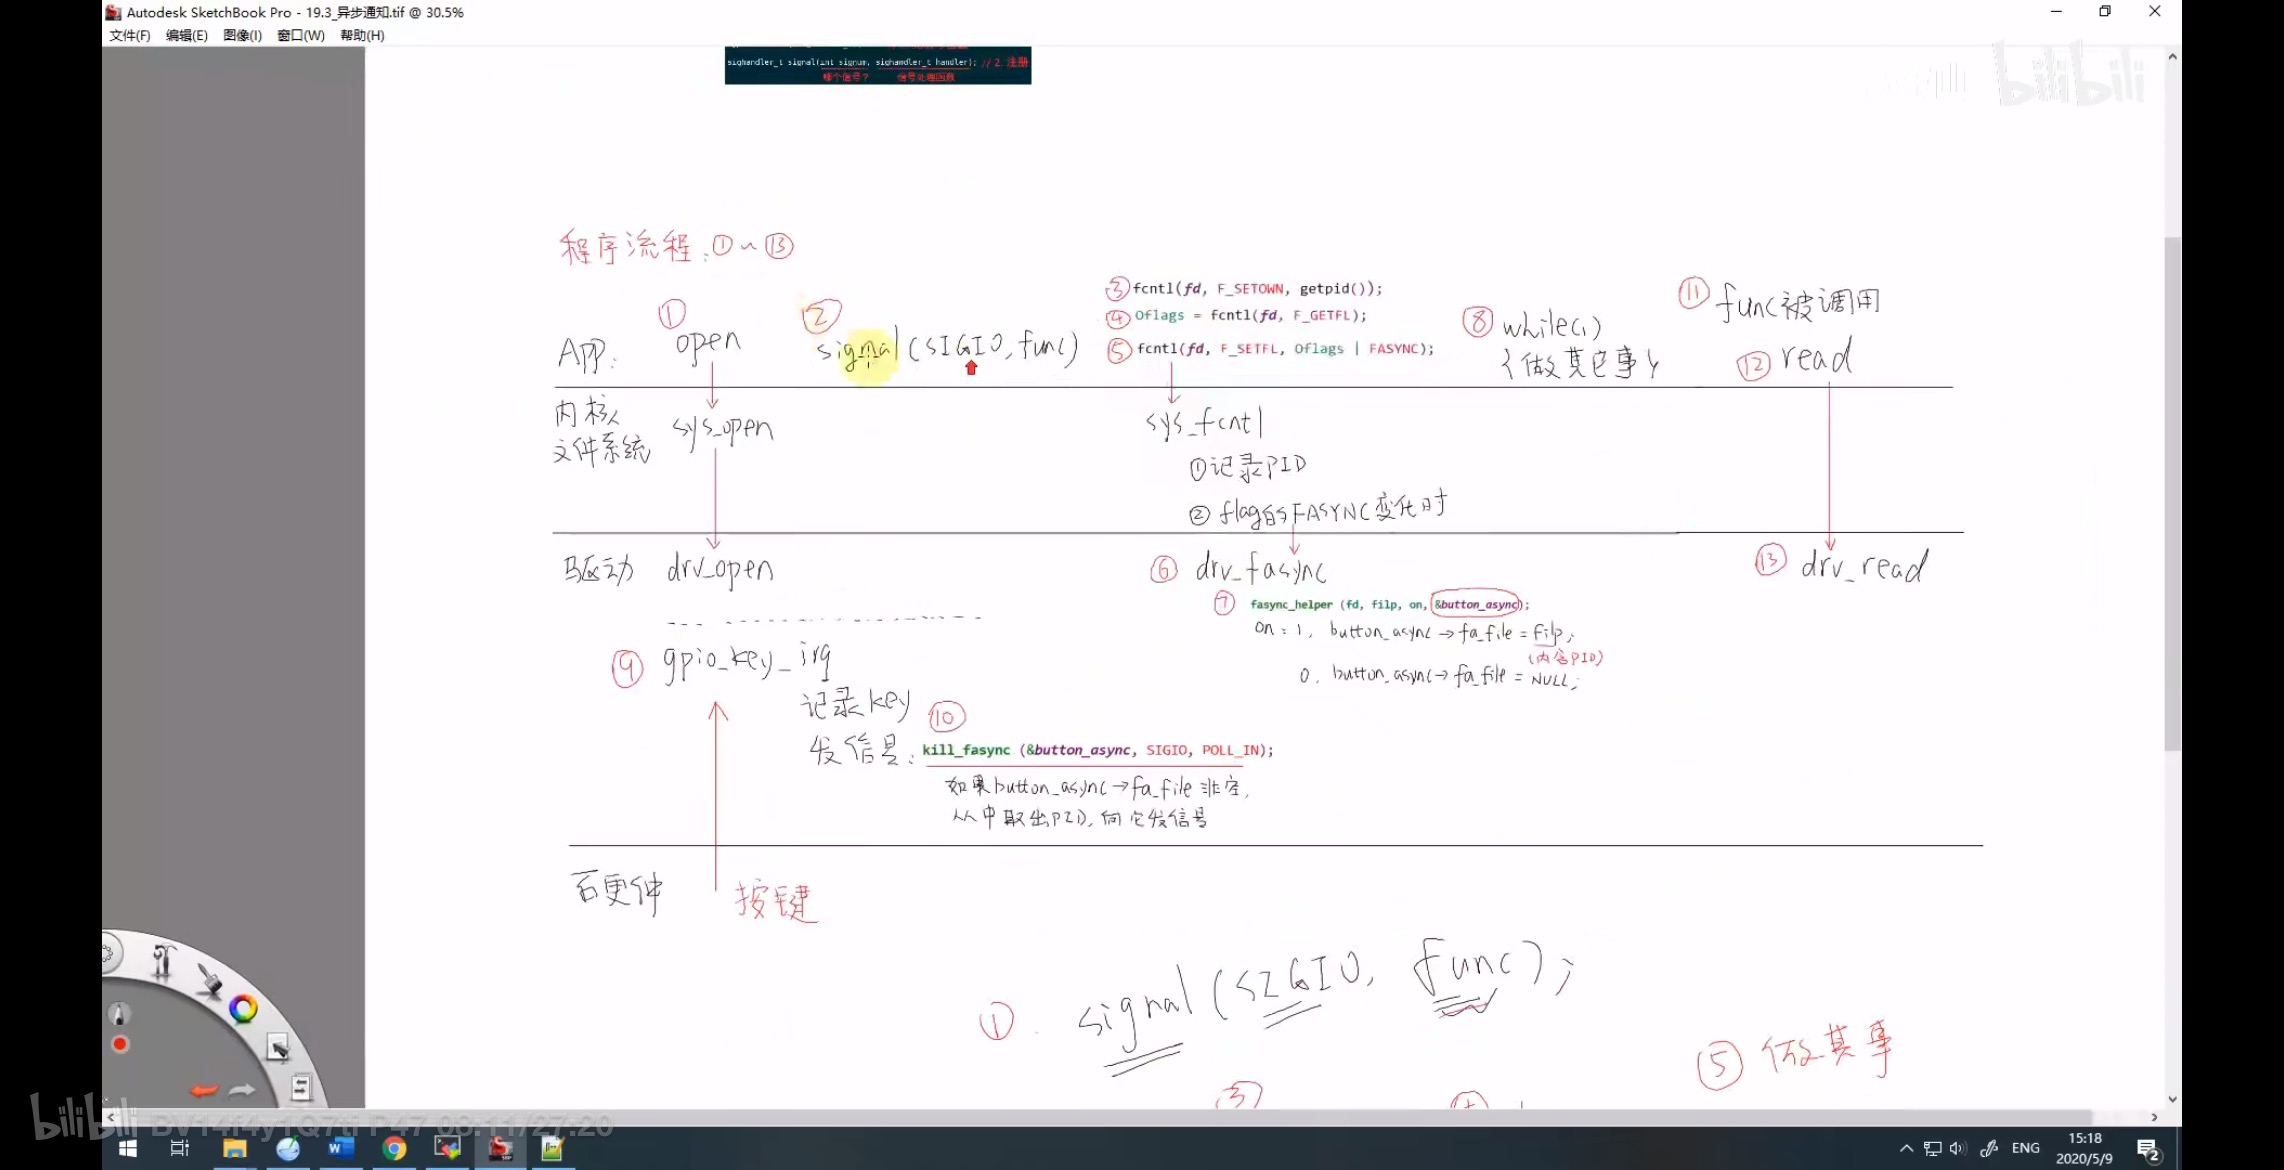 Autodesk SketchBook Pro - 19.3_异步通知.tif @ 30.5%
文件(F) 编辑(E) 图像(I) 窗口(W) 帮助(H)
sighandler_t signal(int signum, sighandler_t handler); // 2. 注册
哪个信号? 信号处理函数
bilibili
程序流程:①~⑬
① open
② signal(SIGIO,func)
③ fcntl(fd, F_SETOWN, getpid());
④ Oflags = fcntl(fd, F_GETFL);
⑤ fcntl(fd, F_SETFL, Oflags | FASYNC);
⑧ while(1)
{做其它事}
⑪ func被调用
⑫ read
App:
内核
文件系统
sys_open
sys_fcntl
①记录PID
② flag的FASYNC变化时
驱动 drv_open
⑥ drv_fasync
⑬ drv_read
⑦ fasync_helper (fd, filp, on, &button_async);
on:1, button_async→fa_file = filp;
(内含PID)
0, button_async→fa_file = NULL;
⑨ gpio_key_irq
记录key
⑩
发信号: kill_fasync (&button_async, SIGIO, POLL_IN);
如果button_async→fa_file非空,
从中取出PID,向它发信号
硬件 按键
① signal(SIGIO, func);
⑤ 做其事
③
bilibili BV14f4y1Q7ti P47 08:11/27:20
ENG
15:18
2020/5/9
2